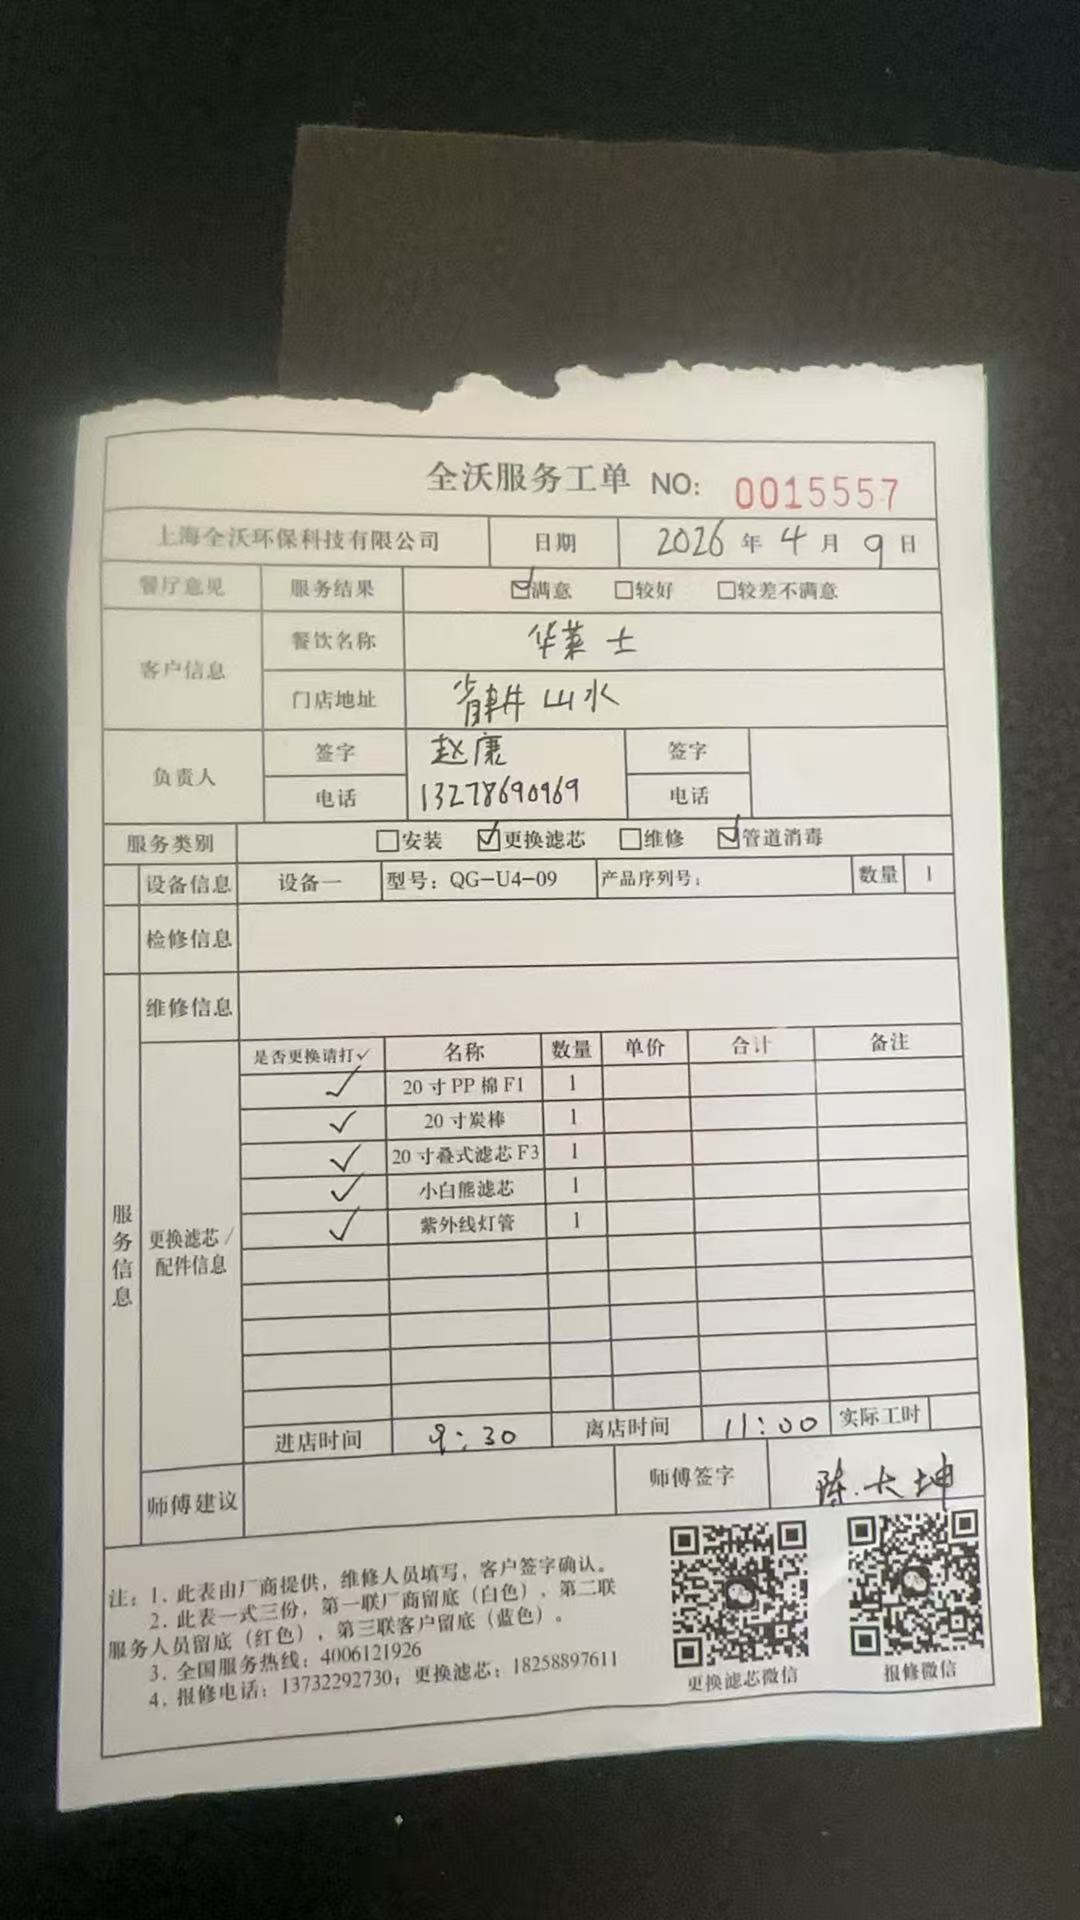 全沃服务工单 NO: 0015557
上海全沃环保科技有限公司 日期 2026年4月9日
餐厅意见 服务结果 ☑满意 □较好 □较差不满意
客户信息 餐饮名称 华莱士
门店地址 山水
负责人 签字 赵康 签字
电话 13278690969 电话
服务类别 □安装 ☑更换滤芯 □维修 ☑管道消毒
设备信息 设备一 型号：QG-U4-09 产品序列号： 数量 1
检修信息
维修信息
服务信息 更换滤芯/配件信息
是否更换请打✓ 名称 数量 单价 合计 备注
✓ 20寸PP棉F1 1
✓ 20寸炭棒 1
✓ 20寸叠式滤芯F3 1
✓ 小白熊滤芯 1
✓ 紫外线灯管 1
进店时间 9:30 离店时间 11:00 实际工时
师傅建议 师傅签字 陈大坤
注：1. 此表由厂商提供，维修人员填写，客户签字确认。
2. 此表一式三份，第一联厂商留底（白色）、第二联
服务人员留底（红色）、第三联客户留底（蓝色）。
3. 全国服务热线：4006121926
4. 报修电话：13732292730；更换滤芯：18258897611
更换滤芯微信 报修微信